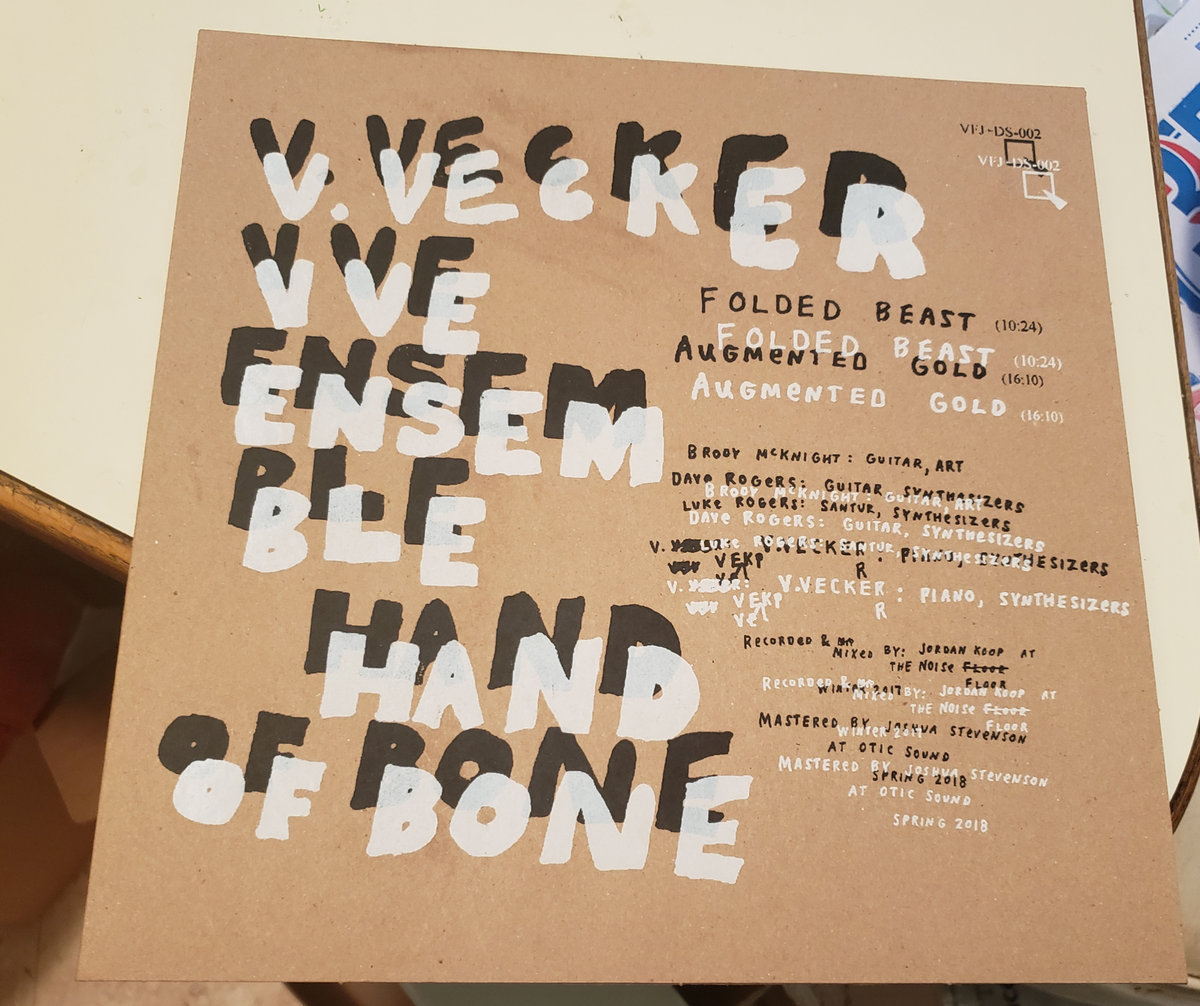 V. VECKER
VVE
ENSEM
BLE
HAND
OF BONE
VFJ-DS-002
VFJ-DS-002
FOLDED BEAST (10:24)
FOLDED BEAST (10:24)
AUGMENTED GOLD (16:10)
AUGMENTED GOLD (16:10)
BRODY McKNIGHT: GUITAR, ART
DAVE ROGERS: GUITAR, SYNTHASIZERS
BRODY McKNIGHT: GUITAR, ART
LUKE ROGERS: SANTUR, SYNTHESIZERS
DAVE ROGERS: GUITAR, SYNTHESIZERS
LUKE ROGERS: SANTUR, SYNTHESIZERS
V. V.VECKER: PIANO, SYNTHESIZERS
VEKP
VE R
V. V.VECKER: PIANO, SYNTHESIZERS
VEKP
VE R
RECORDED &
MIXED BY: JORDAN KOOP AT
THE NOISE FLOOR
FLOOR
RECORDED &
WINTER 2017
MIXED BY: JORDAN KOOP AT
THE NOISE FLOOR
FLOOR
MASTERED BY JOSHUA STEVENSON
WINTER 2017
AT OTIC SOUND
MASTERED BY JOSHUA STEVENSON
SPRING 2018
AT OTIC SOUND
SPRING 2018